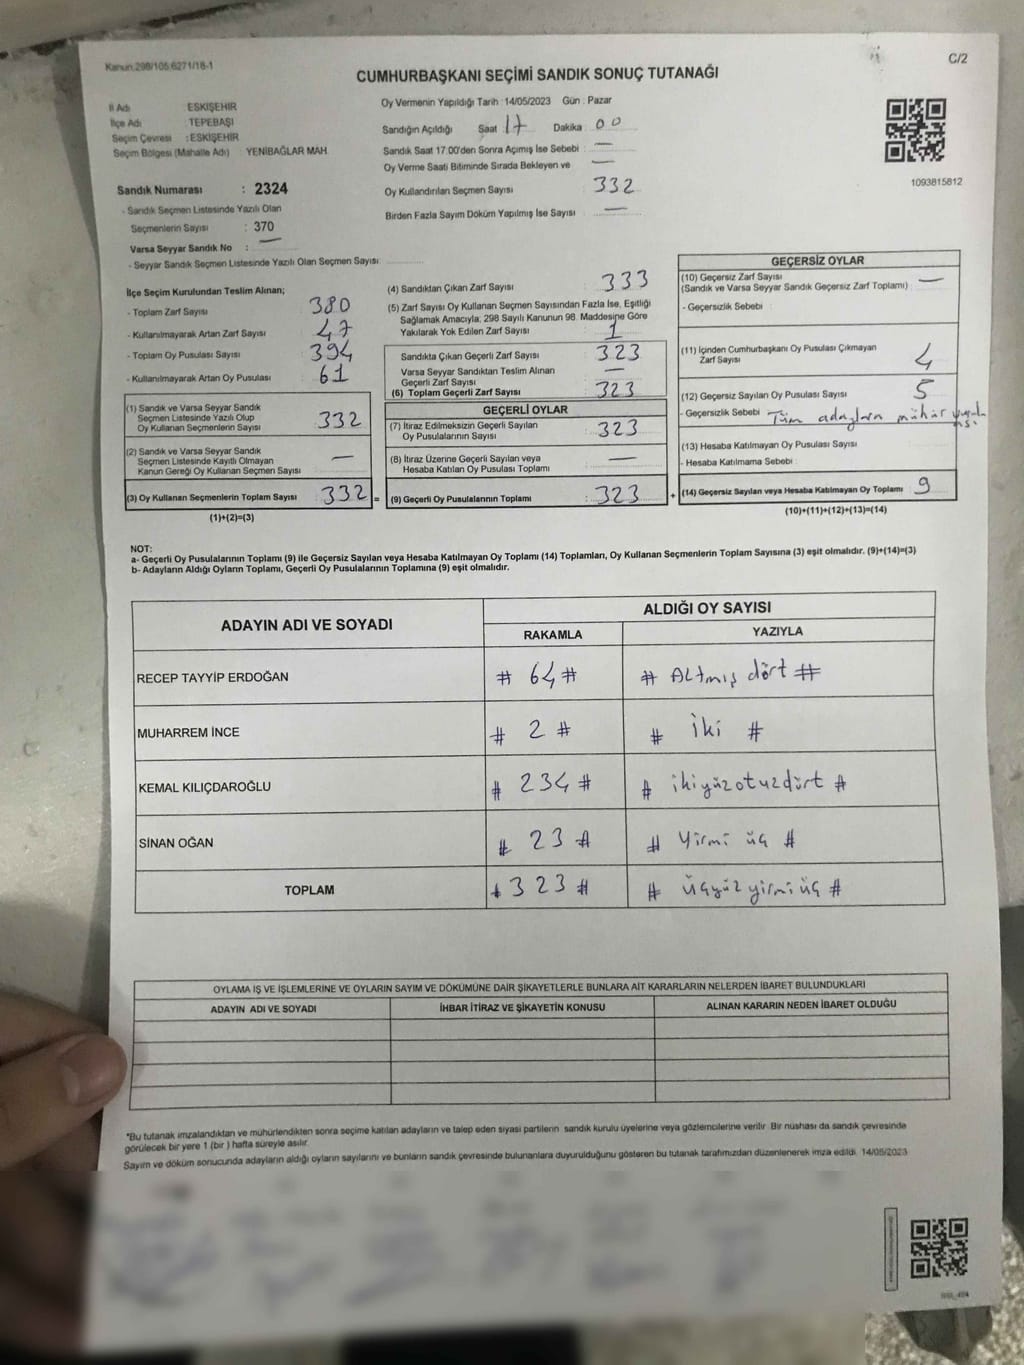 Kanun.298/105.6271/18-1
C/2
CUMHURBAŞKANI SEÇİMİ SANDIK SONUÇ TUTANAĞI
İl Adı : ESKİŞEHİR
İlçe Adı : TEPEBAŞI
Seçim Çevresi : ESKİŞEHİR
Seçim Bölgesi (Mahalle Adı) : YENİBAĞLAR MAH.
Sandık Numarası : 2324
- Sandık Seçmen Listesinde Yazılı Olan
Seçmenlerin Sayısı : 370
Varsa Seyyar Sandık No : —
- Seyyar Sandık Seçmen Listesinde Yazılı Olan Seçmen Sayısı
Oy Vermenin Yapıldığı Tarih : 14/05/2023 Gün : Pazar
Sandığın Açıldığı Saat 17 Dakika 00
Sandık Saat 17:00'den Sonra Açımış İse Sebebi : —
Oy Verme Saati Bitiminde Sırada Bekleyen ve —
Oy Kullandırılan Seçmen Sayısı 332
Birden Fazla Sayım Döküm Yapılmış İse Sayısı —
1093815812
İlçe Seçim Kurulundan Teslim Alınan;
- Toplam Zarf Sayısı 380
- Kullanılmayarak Artan Zarf Sayısı 47
- Toplam Oy Pusulası Sayısı 394
- Kullanılmayarak Artan Oy Pusulası 61
(1) Sandık ve Varsa Seyyar Sandık
Seçmen Listesinde Yazılı Olup
Oy Kullanan Seçmenlerin Sayısı 332
(2) Sandık ve Varsa Seyyar Sandık
Seçmen Listesinde Kayıtlı Olmayan
Kanun Gereği Oy Kullanan Seçmen Sayısı —
(3) Oy Kullanan Seçmenlerin Toplam Sayısı : 332 =
(1)+(2)=(3)
(4) Sandıktan Çıkan Zarf Sayısı 333
(5) Zarf Sayısı Oy Kullanan Seçmen Sayısından Fazla İse, Eşitliği
Sağlamak Amacıyla; 298 Sayılı Kanunun 98. Maddesine Göre
Yakılarak Yok Edilen Zarf Sayısı 1
Sandıkta Çıkan Geçerli Zarf Sayısı 323
Varsa Seyyar Sandıktan Teslim Alınan
Geçerli Zarf Sayısı —
(6) Toplam Geçerli Zarf Sayısı 323
GEÇERLİ OYLAR
(7) İtiraz Edilmeksizin Geçerli Sayılan
Oy Pusulalarının Sayısı 323
(8) İtiraz Üzerine Geçerli Sayılan veya
Hesaba Katılan Oy Pusulası Toplamı —
(9) Geçerli Oy Pusulalarının Toplamı : 323 +
GEÇERSİZ OYLAR
(10) Geçersiz Zarf Sayısı
(Sandık ve Varsa Seyyar Sandık Geçersiz Zarf Toplamı) : —
- Geçersizlik Sebebi :
(11) İçinden Cumhurbaşkanı Oy Pusulası Çıkmayan
Zarf Sayısı 4
(12) Geçersiz Sayılan Oy Pusulası Sayısı 5
- Geçersizlik Sebebi : Tüm adaylara mühür
(13) Hesaba Katılmayan Oy Pusulası Sayısı
- Hesaba Katılmama Sebebi :
(14) Geçersiz Sayılan veya Hesaba Katılmayan Oy Toplamı 9
(10)+(11)+(12)+(13)=(14)
NOT:
a- Geçerli Oy Pusulalarının Toplamı (9) ile Geçersiz Sayılan veya Hesaba Katılmayan Oy Toplamı (14) Toplamları, Oy Kullanan Seçmenlerin Toplam Sayısına (3) eşit olmalıdır. (9)+(14)=(3)
b- Adayların Aldığı Oyların Toplamı, Geçerli Oy Pusulalarının Toplamına (9) eşit olmalıdır.
ADAYIN ADI VE SOYADI ALDIĞI OY SAYISI
RAKAMLA YAZIYLA
RECEP TAYYİP ERDOĞAN # 64 # # Altmış dört #
MUHARREM İNCE # 2 # # İki #
KEMAL KILIÇDAROĞLU # 234 # # ikiyüzotuzdört #
SİNAN OĞAN # 23 # # Yirmi üç #
TOPLAM # 323 # # üçyüzyirmiüç #
OYLAMA İŞ VE İŞLEMLERİNE VE OYLARIN SAYIM VE DÖKÜMÜNE DAİR ŞİKAYETLERLE BUNLARA AİT KARARLARIN NELERDEN İBARET BULUNDUKLARI
ADAYIN ADI VE SOYADI İHBAR İTİRAZ VE ŞİKAYETİN KONUSU ALINAN KARARIN NEDEN İBARET OLDUĞU
*Bu tutanak imzalandıktan ve mühürlendikten sonra seçime katılan adayların ve talep eden siyasi partilerin sandık kurulu üyelerine veya gözlemcilerine verilir. Bir nüshası da sandık çevresinde
görülecek bir yere 1 (bir) hafta süreyle asılır.
Sayım ve döküm sonucunda adayların aldığı oyların sayılarını ve bunların sandık çevresinde bulunanlara duyurulduğunu gösteren bu tutanak tarafımızdan düzenlenerek imza edildi. 14/05/2023